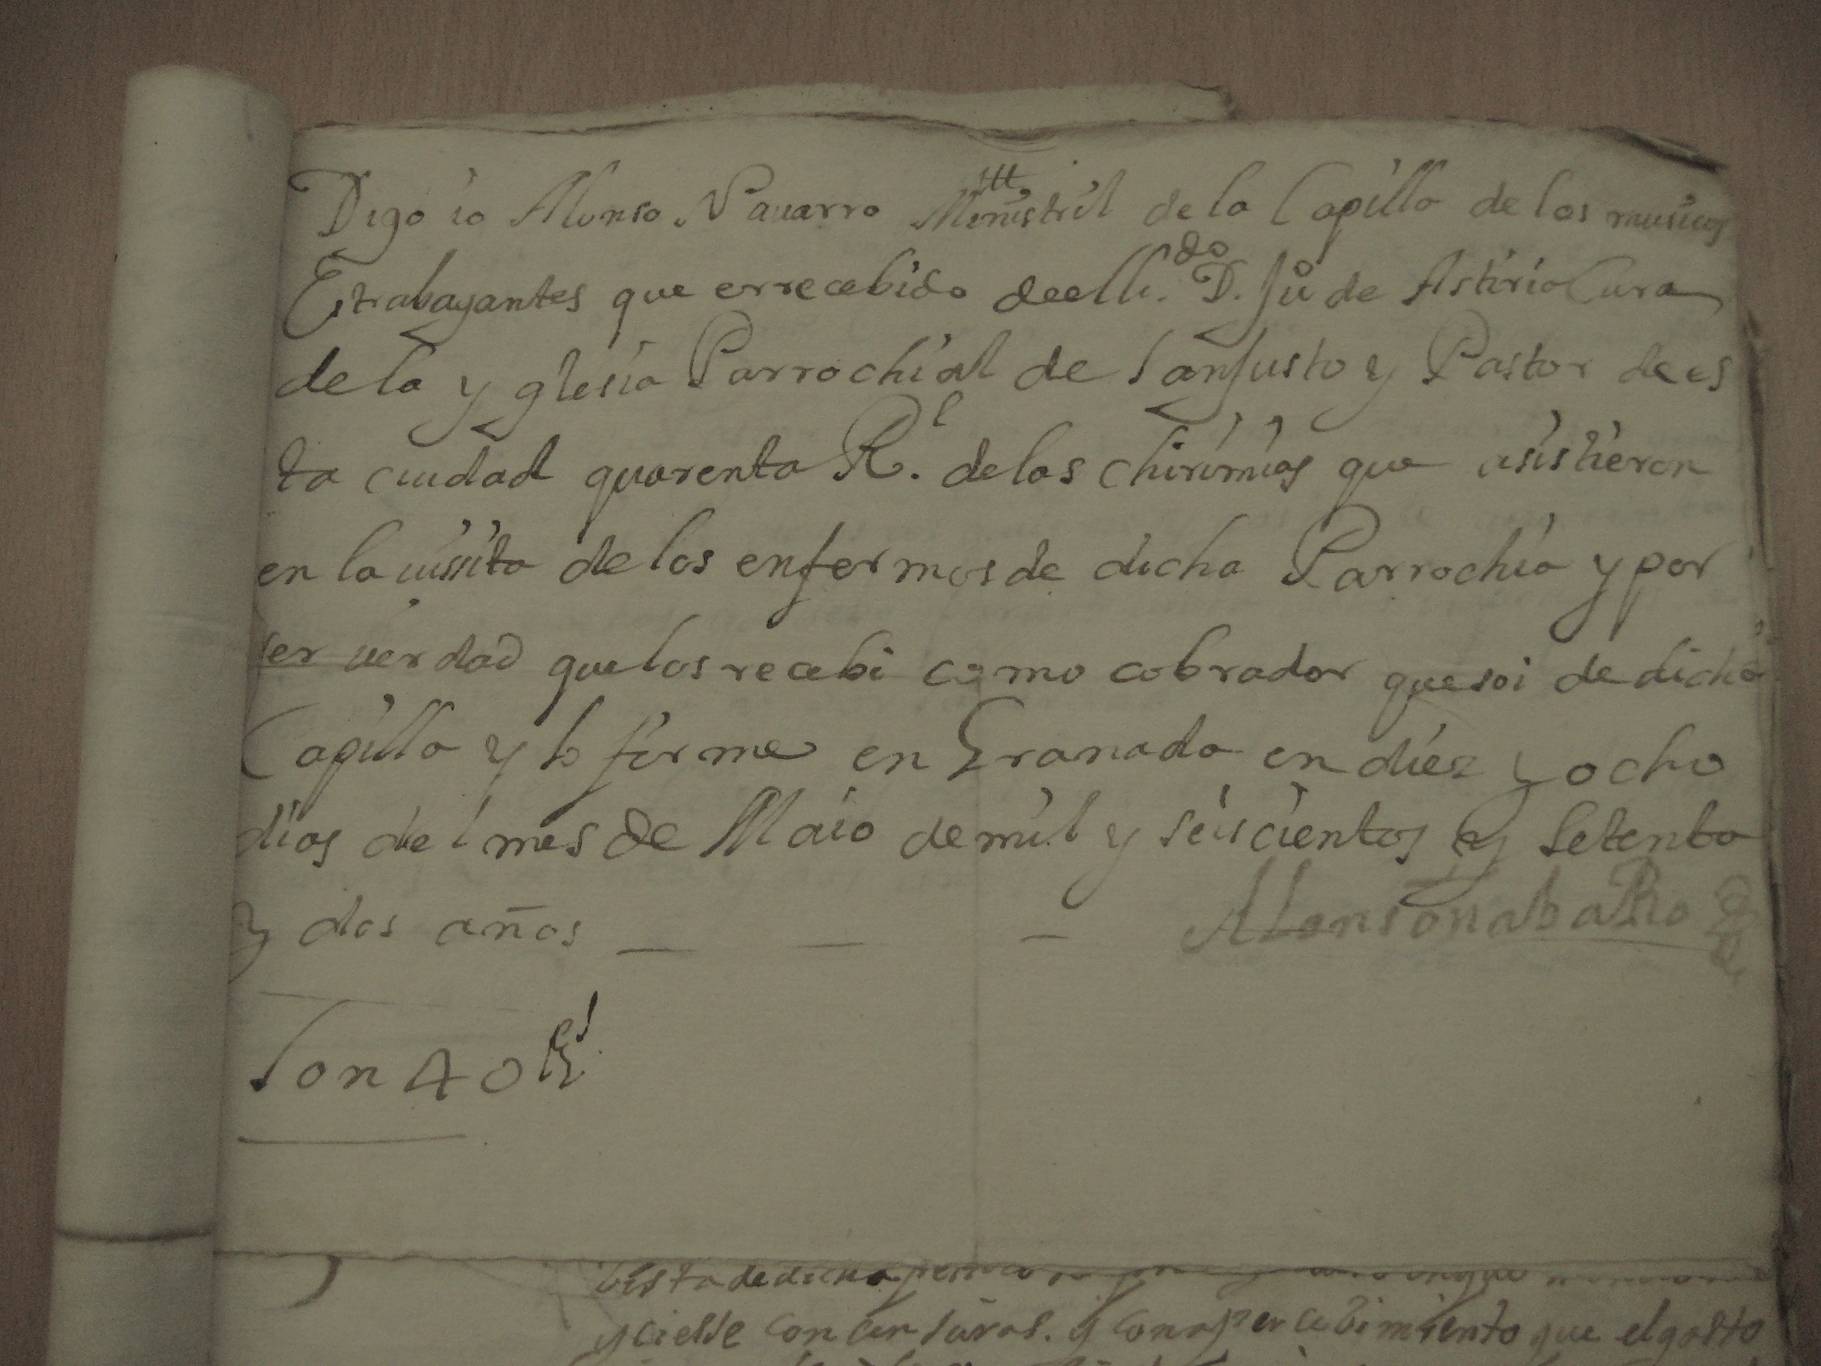 Digo io Alonso Nauarro Ministril de la Capilla de los musicos
Estrabagantes que errecebido deel Li.do D. Ju de Astirio Cura
de la yglesia Parrochial de San Justo y Pastor de es
ta ciudad quarenta Rl. de las chirimias que asistieron
en la uissita de los enfermos de dicha Parrochia y por
ser uerdad que los recebi como cobrador que soi de dicha
Capilla y lo firme en Granada en diez y ocho
dias del mes de Maio de mil y seiscientos y setenta
y dos años — — — Alonso nabaRo
Son 40 Rs
vista de dicha
y cielde con censuras. y con apercebimiento que el gasto